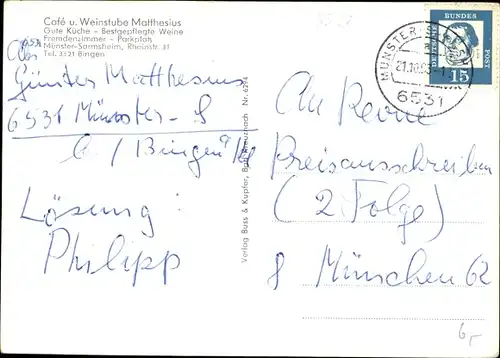 Café u. Weinstube Matthesius
Gute Küche - Bestgepflegte Weine
Fremdenzimmer - Parkplatz
Münster-Sarmsheim, Rheinstr. 31
Tel. 3321 Bingen
6531
Abs
Günter Matthesius
6531 Münster - S
b / Bingen
Lösung :
Philipp
Verlag Buss & Kupfer, Bad Kreuznach Nr. 6294
6531
DEUTSCHE
BUNDES
POST
15
An Revue
Preisausschreiben
(2. Folge)
8 München 62